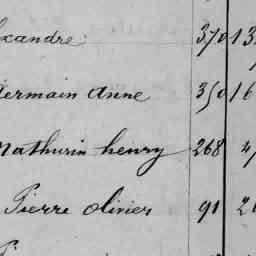 xandre 370 13
Germain Anne 350 16
Mathurin henry 268 4
Pierre Olivier 91 2